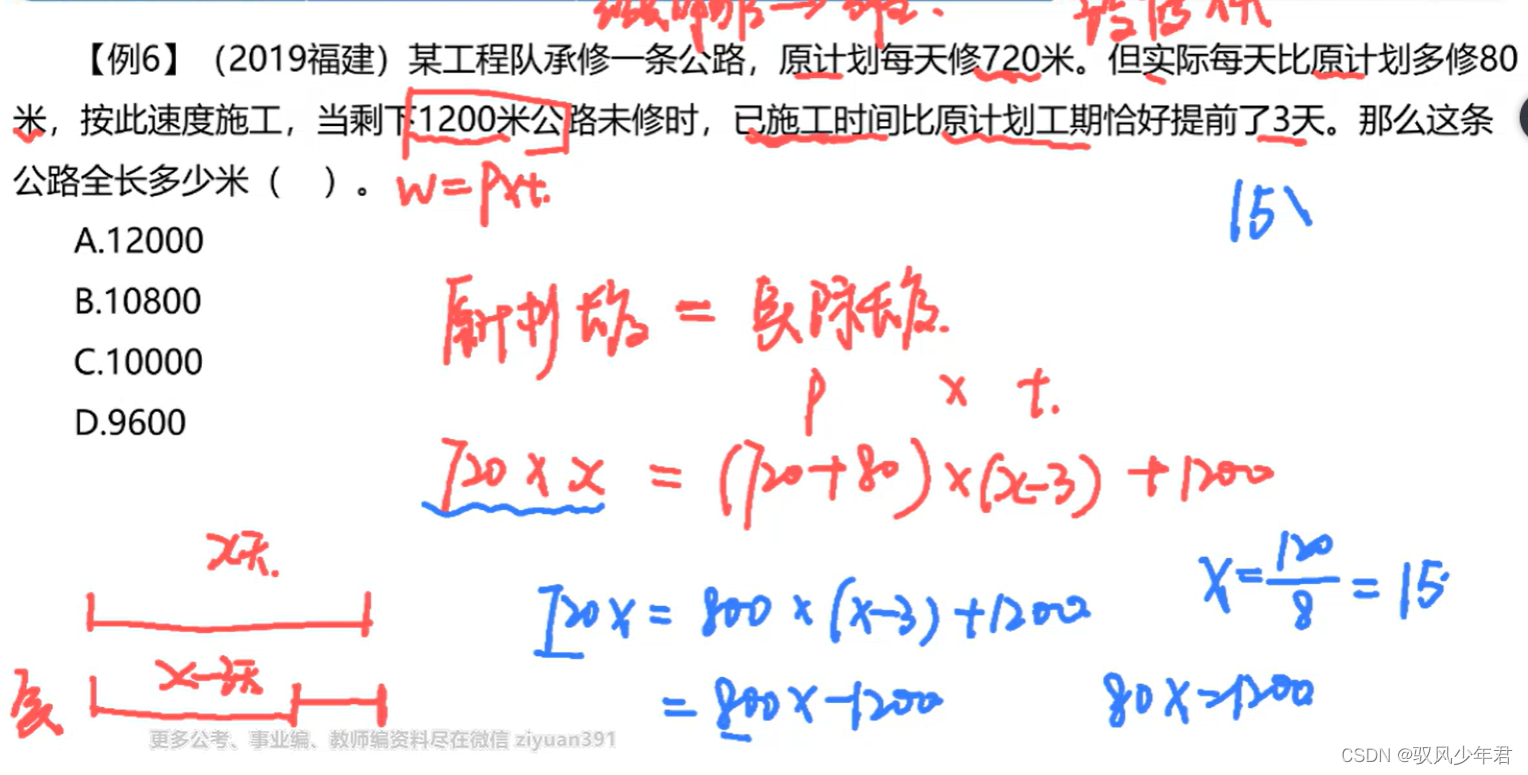 【例6】（2019福建）某工程队承修一条公路，原计划每天修720米。但实际每天比原计划多修80
米，按此速度施工，当剩下1200米公路未修时，已施工时间比原计划工期恰好提前了3天。那么这条
公路全长多少米（ ）。
W=P×t.
15
A.12000
B.10800
C.10000
D.9600
原计划长度 = 实际长度.
P × t.
720 × x = (720+80)×(x-3) +1200
x天.
x-3天
实
720x = 800 × (x-3) +1200
x = 120/8 = 15
= 800x-1200
80x=1200
更多公考、事业编、教师编资料尽在微信 ziyuan391
CSDN @驭风少年君